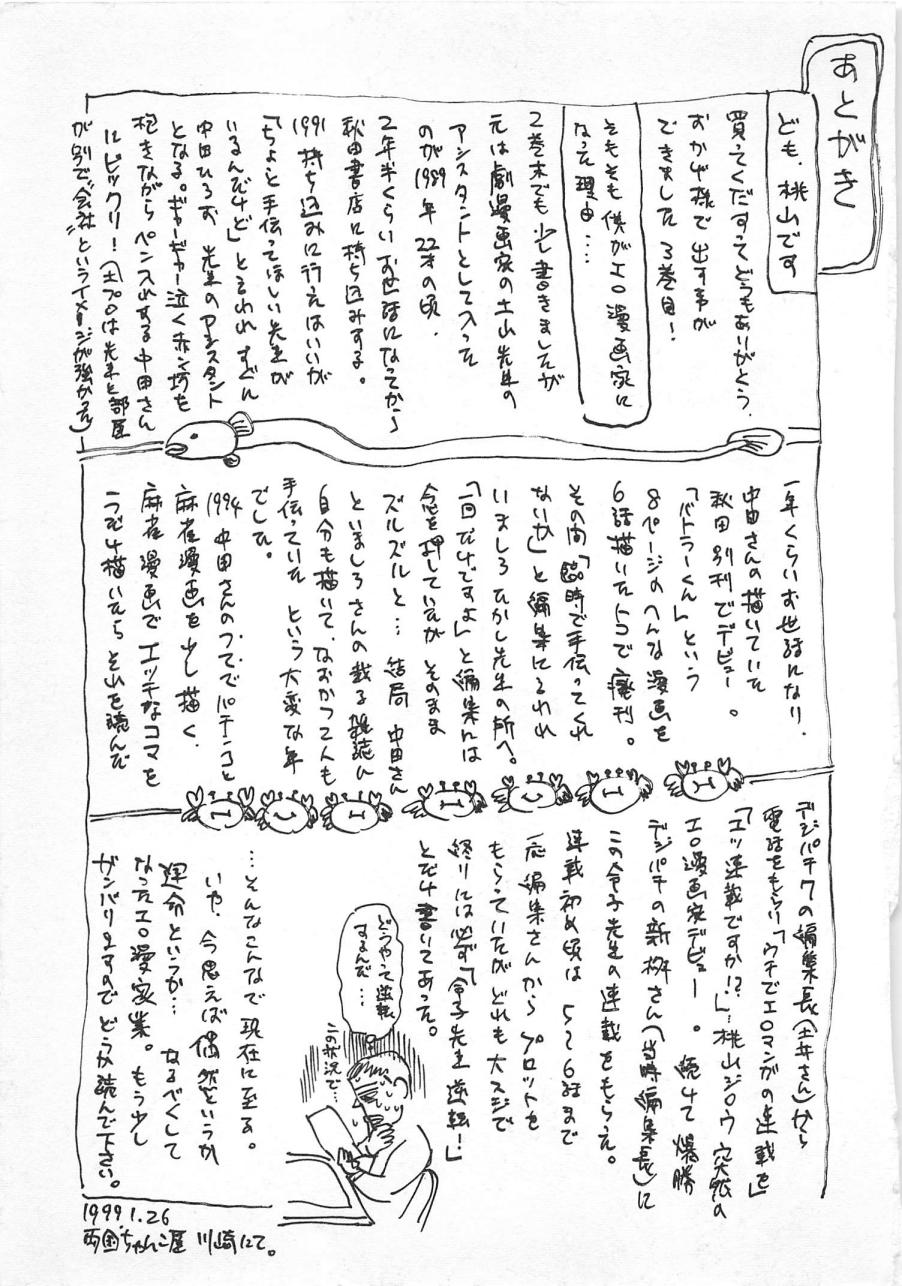 あとがき
ども、桃山です
買ってくだすってどうもありがとう。
おかげ様で出す事が
できました3巻目！
そもそも僕がエロ漫画家に
なった理由…
2巻末でも少し書きましたが
元は劇漫画家の土山先生の
アシスタントとして入った
のが1989年22才の頃．
2年半くらいお世話になってから
秋田書店に持ち込みする。
1991持ち込みに行くはいいが
「ちょっと手伝ってほしい先生が
いるんだけど」と言われすぐに
中田ひろお先生のアシスタント
となる。ギャーギャー泣く赤ん坊を
抱きながらペン入れする中田さん
にビックリ！（土プロは先生と部屋
が別で“会社”というイメージが強かった）
一年くらいお世話になり．
中田さんの描いていた
秋田別刊でデビュー。
「バトラーくん」という
8ページのへんな漫画を
6話描いたトコで廃刊。
その间「臨時で手伝ってくれ
ないか」と編集に言われ
いましろたかし先生の所へ。
「一回だけですよ」と編集には
念を押していたがそのまま
ズルズルと…結局中田さん
といましろさんの載る雑誌に
自分も描いて、なおかつ二人も
手伝っていたという大変な年
でした。
1994中田さんのつてでパチンコと
麻雀漫画を少し描く．
麻雀漫画でエッチなコマを
つだけ描いたらそれを読んだ
エ
ロ
エ
エ
ロ
エ
エ
デジパチ7の編集長（土井さん）から
電話をもらい「ウチでエロマンガの連載を」
「エッ連載ですか!?」…桃山ジロウ突然の
エロ漫画家デビュー。続けて爆勝
デジパチの新桝さん（当時編集長）に
この令子先生の連載をもらった。
連載初め頃は5～6話まで
応編集さんからプロットを
もらっていたがどれも大スジで
終りには必ず「令子先生逆転！」
とだけ書いてあった。
どうやって逆転
するんだ…
この状況で…
…そんなこんなで現在に至る。
いや、今思えば偶然というか
運命というか…なるべくして
なったエロ漫家業。もう少し
ガンバリますのでどうか読んで下さい。
1999 1.26
両国ちゃんこ屋 川崎にて。